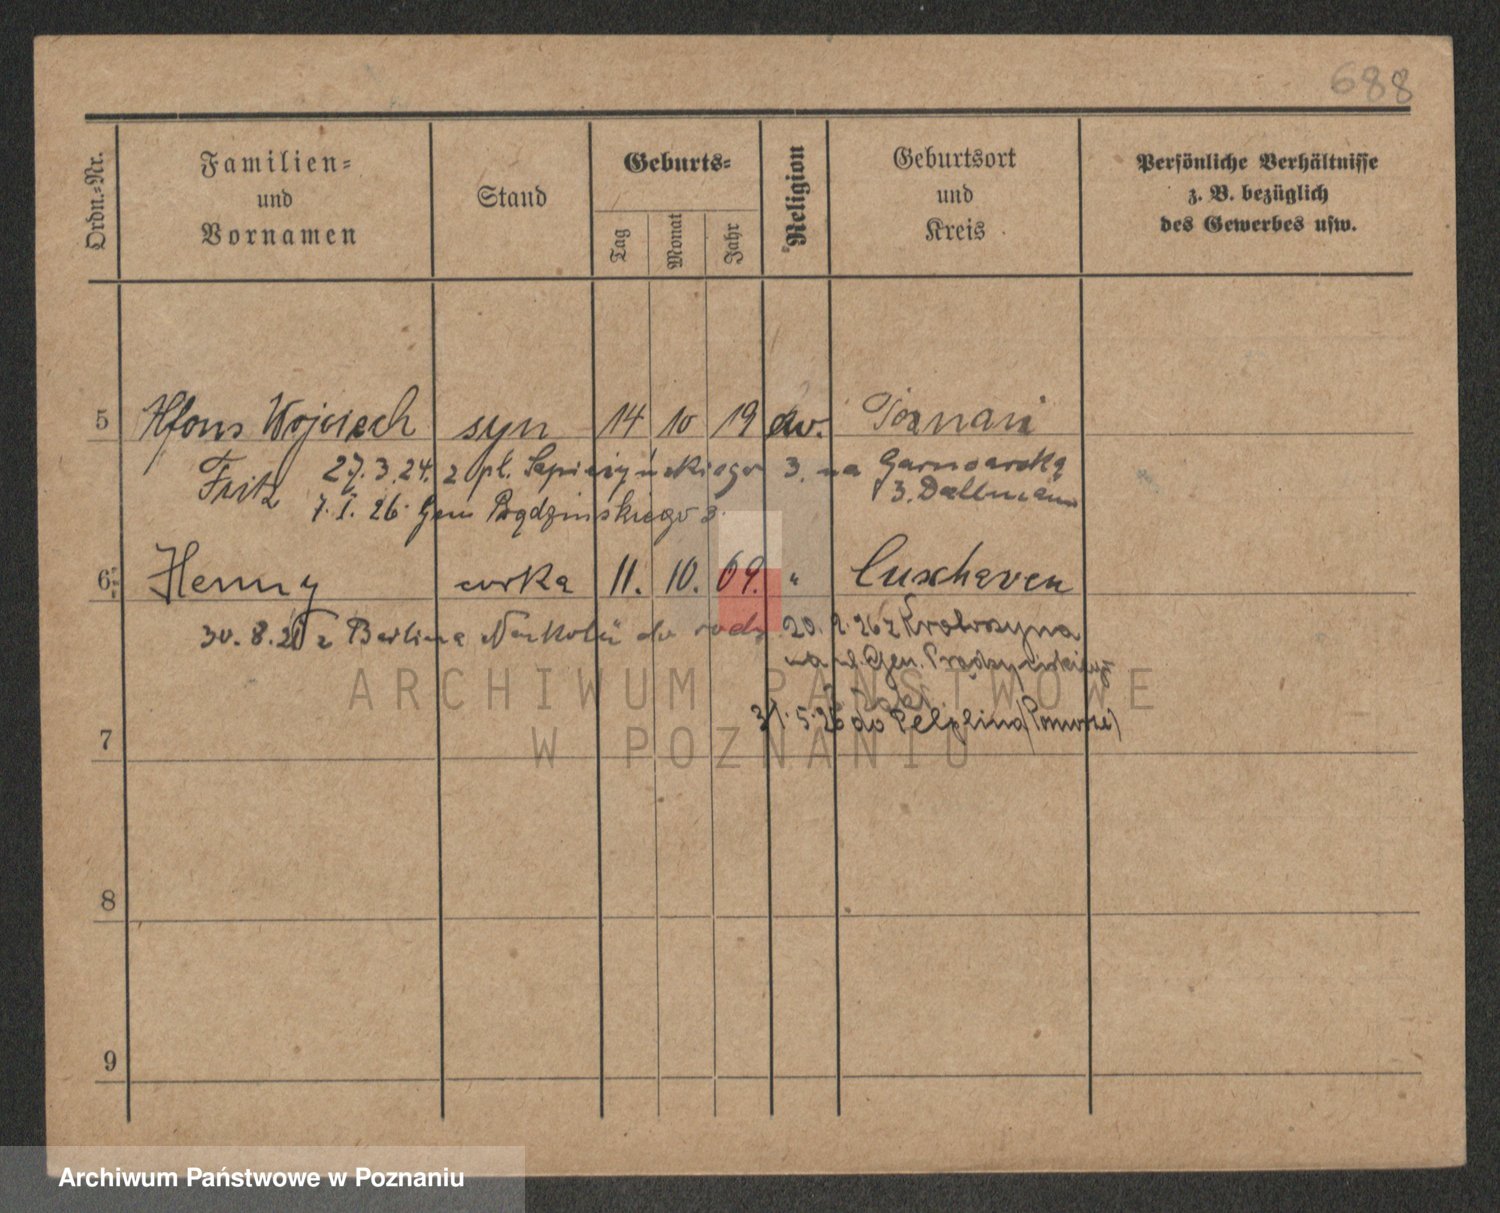 688
Ordn.=Nr.
Familien=
und
Vornamen
Stand
Geburts=
Tag
Monat
Jahr
Religion
Geburtsort
und
Kreis
Persönliche Verhältnisse
z. B. bezüglich
des Gewerbes usw.
5 Alfons Wojciech syn 14 10 19 ew. Poznań
Fritz 27.3.24. z pl. Sapieżyńskiego 3. na Garncarską
3. Dallmann
7. I. 26. Gen Prądzinskiego 3.
6 Henny curka 11. 10. 09. " Cuxhaven
30. 8. 21 z Berlina do 20. 2. 26 z Krotoszyna
na ul. Gen. Prądzyńskiego
31. 5. 26 do Pelplina (Pomorze)
7
8
9
ARCHIWUM PAŃSTWOWE
W POZNANIU
Archiwum Państwowe w Poznaniu